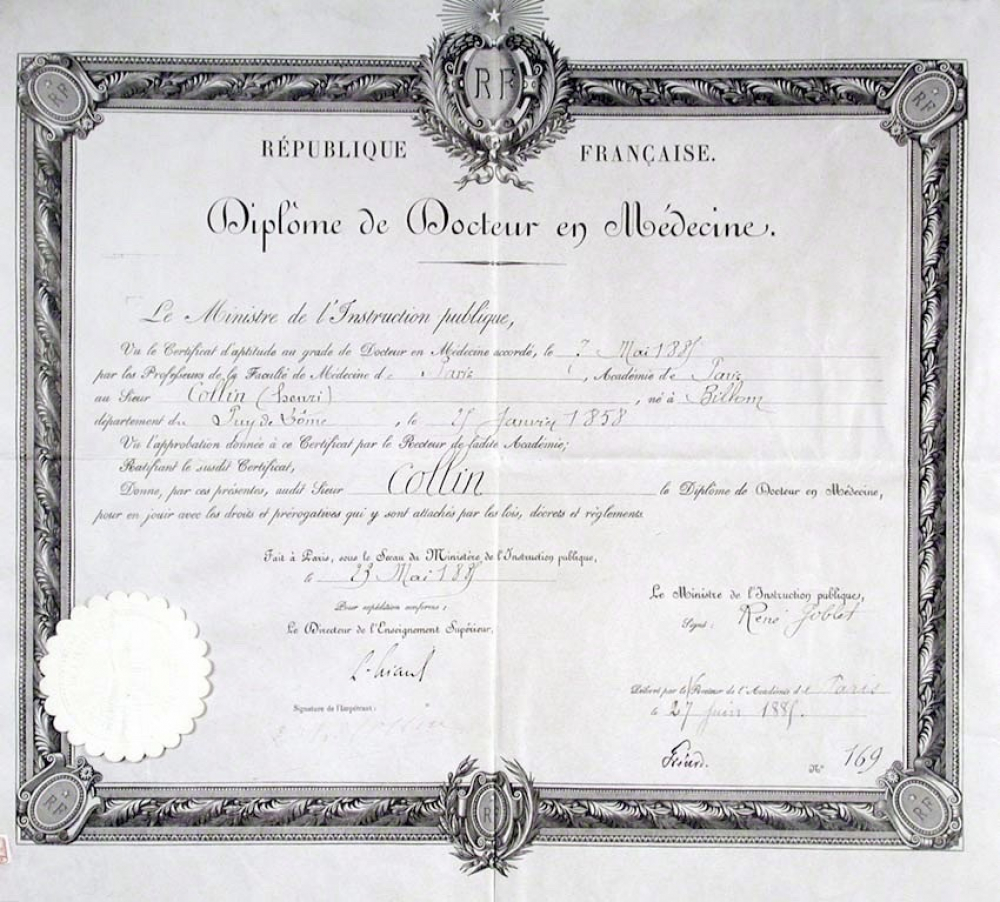 RF
RF
RF
RÉPUBLIQUE FRANÇAISE.
Diplôme de Docteur en Médecine.
Le Ministre de l'Instruction publique,
Vu le Certificat d'aptitude au grade de Docteur en Médecine accordé, le 7 Mai 1885
par les Professeurs de la Faculté de Médecine de Paris, Académie de Paris
au Sieur Collin (henri), né à Billom
département du Puy de Dôme, le 25 Janvier 1858
Vu l'approbation donnée à ce Certificat par le Recteur de ladite Académie;
Ratifiant le susdit Certificat,
Donne, par ces présentes, audit Sieur Collin le Diplôme de Docteur en Médecine,
pour en jouir avec les droits et prérogatives qui y sont attachés par les lois, décrets et règlements.
Fait à Paris, sous le Sceau du Ministère de l'Instruction publique,
le 23 Mai 1885
Pour expédition conforme :
Le Directeur de l'Enseignement Supérieur,
Le Ministre de l'Instruction publique,
Signé : René Goblet
L. Liard
Délivré par le Recteur de l'Académie de Paris
le 27 juin 1885.
Signature de l'Impétrant :
N° 169
RF
RF
RF